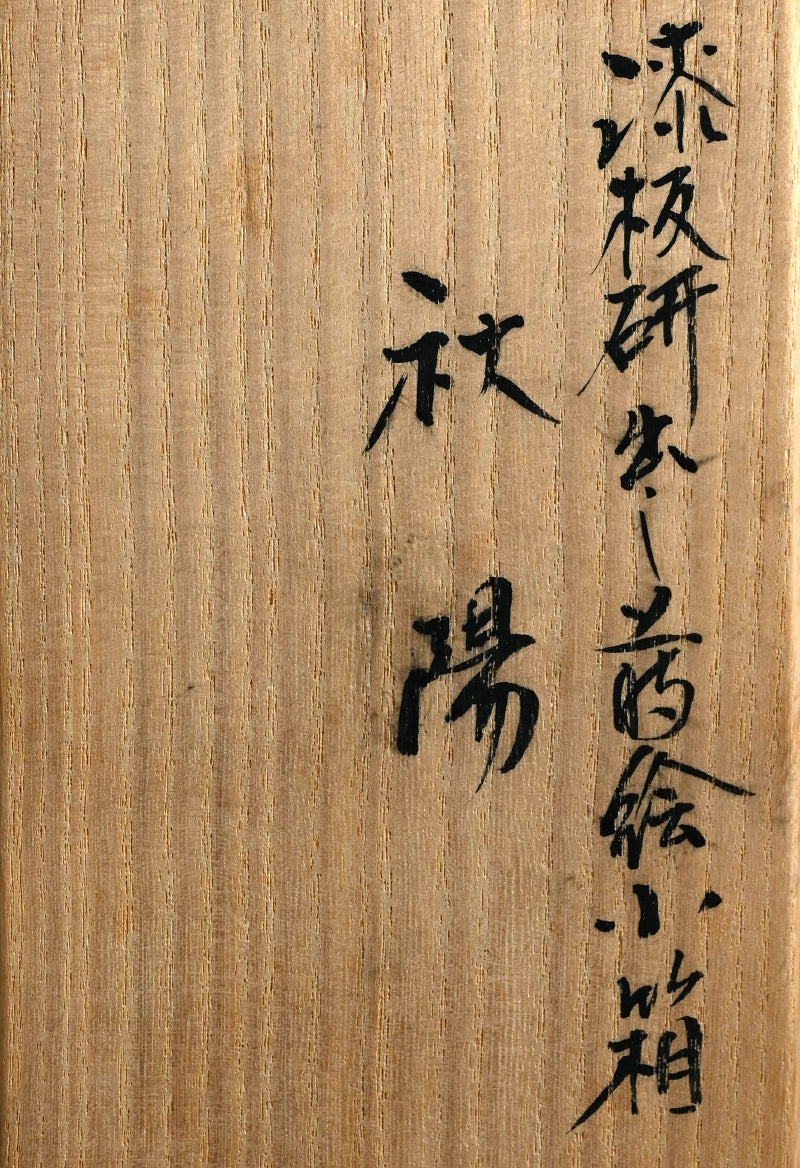 漆板研出し蒔絵小箱
秋陽